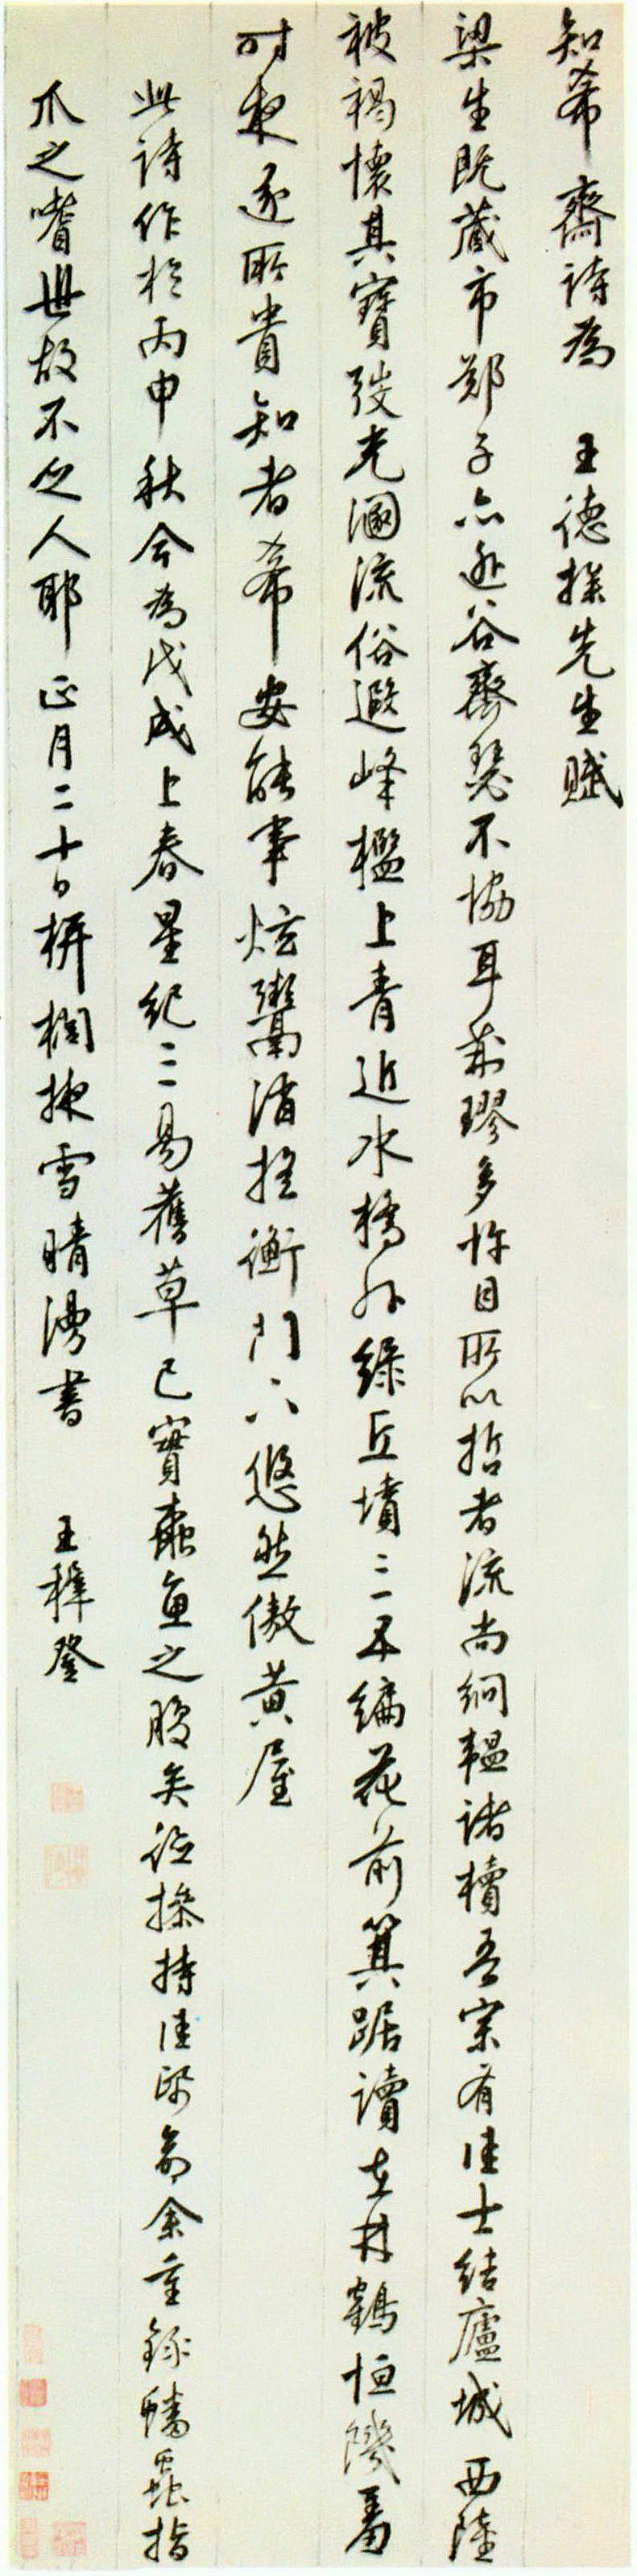 知希齋詩為 王德操先生賦
梁生既藏市鄭子亦逃谷齊瑟不協耳荊璆多怍目所以哲者流尚絅韞諸櫝吾宗有佳士結廬城西陸
被褐懷其寶弢光溷流俗遐峰檻上青近水橋外綠丘墳三五編花前箕踞讀在林鶴恒饑畜
时衆逐所貴知者希安能事炫鬻清搖衡門下悠然傲黃屋
此詩作於丙申秋今為戊戌上春星紀三易舊草已實蠹魚之腹矣德操持佳紙命余重錄蟠蟲指
爪之嗜世故不乏人耶 正月二十日栟櫚掖雪晴漫書 王穉登